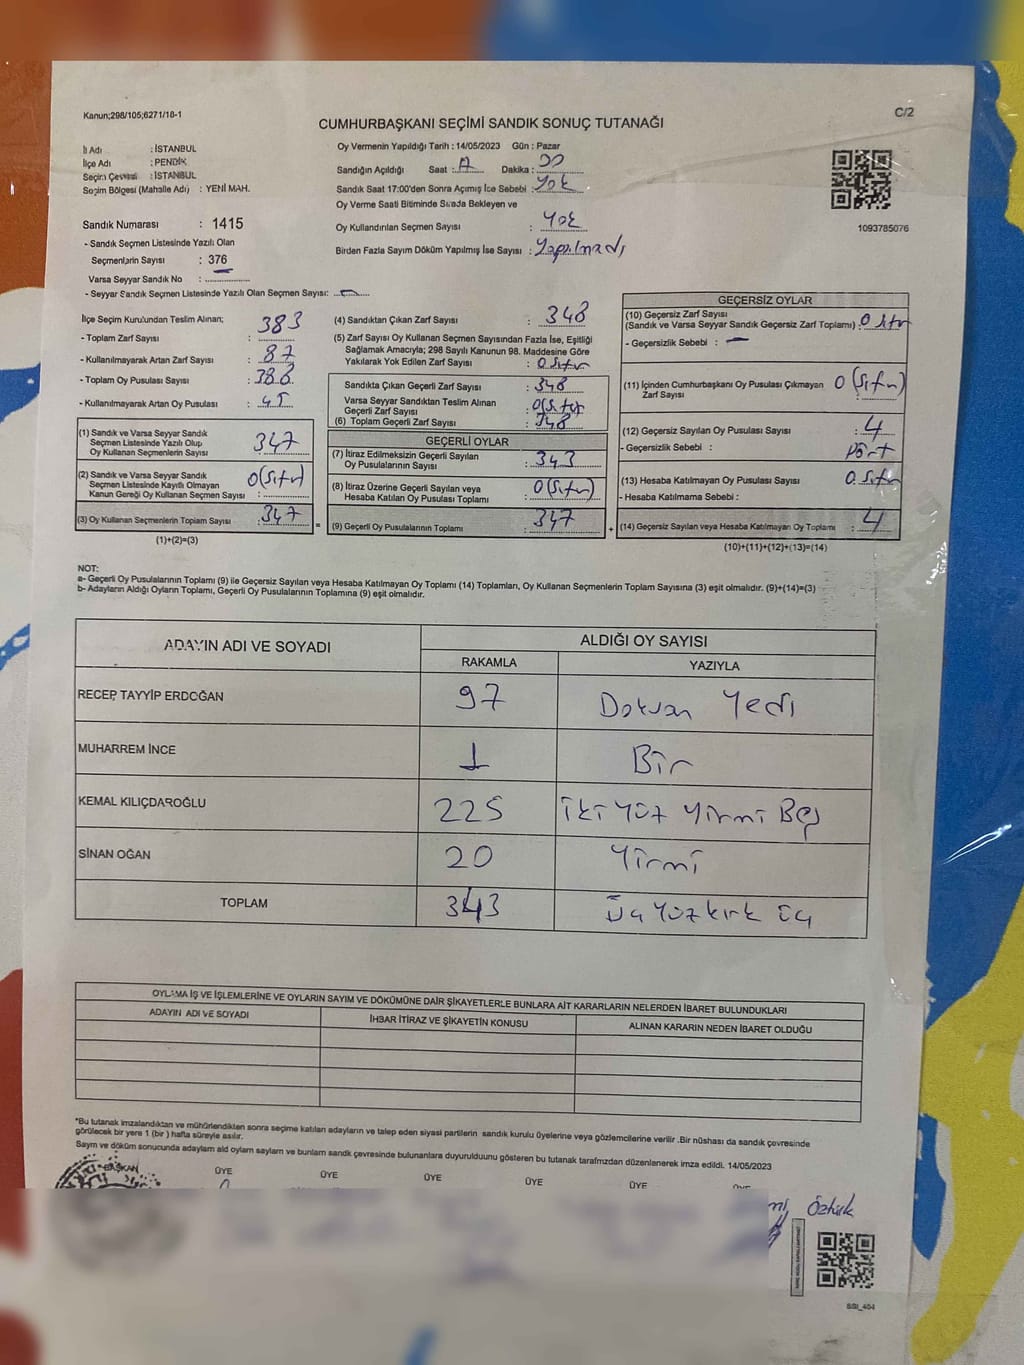 Kanun;298/105;6271/18-1
C/2
CUMHURBAŞKANI SEÇİMİ SANDIK SONUÇ TUTANAĞI
İl Adı : İSTANBUL
İlçe Adı : PENDİK
Seçim Çevresi : İSTANBUL
Seçim Bölgesi (Mahalle Adı) : YENİ MAH.
Oy Vermenin Yapıldığı Tarih : 14/05/2023 Gün : Pazar
Sandığın Açıldığı Saat : Dakika : 00
Sandık Saat 17:00'den Sonra Açımış İse Sebebi : Yok
Oy Verme Saati Bitiminde Sırada Bekleyen ve
Oy Kullandırılan Seçmen Sayısı : Yok
Birden Fazla Sayım Döküm Yapılmış İse Sayısı : Yapılmadı
1093785076
Sandık Numarası : 1415
- Sandık Seçmen Listesinde Yazılı Olan
Seçmenlerin Sayısı : 376
Varsa Seyyar Sandık No :
- Seyyar Sandık Seçmen Listesinde Yazılı Olan Seçmen Sayısı: —
İlçe Seçim Kurulundan Teslim Alınan;
- Toplam Zarf Sayısı : 383
- Kullanılmayarak Artan Zarf Sayısı : 87
- Toplam Oy Pusulası Sayısı : 388
- Kullanılmayarak Artan Oy Pusulası : 45
(1) Sandık ve Varsa Seyyar Sandık
Seçmen Listesinde Yazılı Olup
Oy Kullanan Seçmenlerin Sayısı : 347
(2) Sandık ve Varsa Seyyar Sandık
Seçmen Listesinde Kayıtlı Olmayan
Kanun Gereği Oy Kullanan Seçmen Sayısı : 0(Sıfır)
(3) Oy Kullanan Seçmenlerin Toplam Sayısı : 347
(1)+(2)=(3)
=
(4) Sandıktan Çıkan Zarf Sayısı : 348
(5) Zarf Sayısı Oy Kullanan Seçmen Sayısından Fazla İse, Eşitliği
Sağlamak Amacıyla; 298 Sayılı Kanunun 98. Maddesine Göre
Yakılarak Yok Edilen Zarf Sayısı : 0 Sıfır
Sandıkta Çıkan Geçerli Zarf Sayısı : 348
Varsa Seyyar Sandıktan Teslim Alınan
Geçerli Zarf Sayısı : 0(Sıfır)
(6) Toplam Geçerli Zarf Sayısı : 348
GEÇERLİ OYLAR
(7) İtiraz Edilmeksizin Geçerli Sayılan
Oy Pusulalarının Sayısı : 343
(8) İtiraz Üzerine Geçerli Sayılan veya
Hesaba Katılan Oy Pusulası Toplamı : 0(Sıfır)
(9) Geçerli Oy Pusulalarının Toplamı : 347
+
GEÇERSİZ OYLAR
(10) Geçersiz Zarf Sayısı
(Sandık ve Varsa Seyyar Sandık Geçersiz Zarf Toplamı) : 0 Sıfır
- Geçersizlik Sebebi : —
(11) İçinden Cumhurbaşkanı Oy Pusulası Çıkmayan
Zarf Sayısı 0 (Sıfır)
(12) Geçersiz Sayılan Oy Pusulası Sayısı : 4
- Geçersizlik Sebebi : Dört
(13) Hesaba Katılmayan Oy Pusulası Sayısı 0 Sıfır
- Hesaba Katılmama Sebebi :
(14) Geçersiz Sayılan veya Hesaba Katılmayan Oy Toplamı : 4
(10)+(11)+(12)+(13)=(14)
NOT:
a- Geçerli Oy Pusulalarının Toplamı (9) ile Geçersiz Sayılan veya Hesaba Katılmayan Oy Toplamı (14) Toplamları, Oy Kullanan Seçmenlerin Toplam Sayısına (3) eşit olmalıdır. (9)+(14)=(3)
b- Adayların Aldığı Oyların Toplamı, Geçerli Oy Pusulalarının Toplamına (9) eşit olmalıdır.
ADAYIN ADI VE SOYADI ALDIĞI OY SAYISI
RAKAMLA YAZIYLA
RECEP TAYYİP ERDOĞAN 97 Doksan Yedi
MUHARREM İNCE 1 Bir
KEMAL KILIÇDAROĞLU 225 İki Yüz Yirmi Beş
SİNAN OĞAN 20 Yirmi
TOPLAM 343 Üç Yüz kırk üç
OYLAMA İŞ VE İŞLEMLERİNE VE OYLARIN SAYIM VE DÖKÜMÜNE DAİR ŞİKAYETLERLE BUNLARA AİT KARARLARIN NELERDEN İBARET BULUNDUKLARI
ADAYIN ADI VE SOYADI İHBAR İTİRAZ VE ŞİKAYETİN KONUSU ALINAN KARARIN NEDEN İBARET OLDUĞU
*Bu tutanak imzalandıktan ve mühürlendikten sonra seçime katılan adayların ve talep eden siyasi partilerin sandık kurulu üyelerine veya gözlemcilerine verilir .Bir nüshası da sandık çevresinde
görülecek bir yere 1 (bir ) hafta süreyle asılır.
Sayım ve döküm sonucunda adayların ald oyların sayların ve bunların sandık çevresinde bulunanlara duyurulduunu gösteren bu tutanak tarafmzdan düzenlenerek imza edildi. 14/05/2023
BAŞKAN ÜYE ÜYE ÜYE ÜYE ÜYE
Öztürk
SSI_404